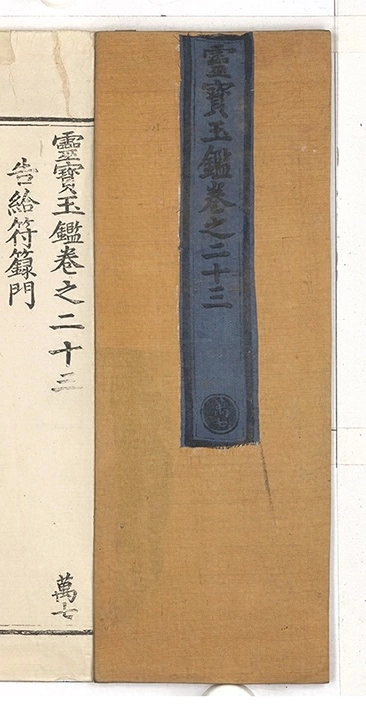 靈寶玉鑑卷之二十三
萬七
靈寶玉鑑卷之二十三
萬七
告給符籙門